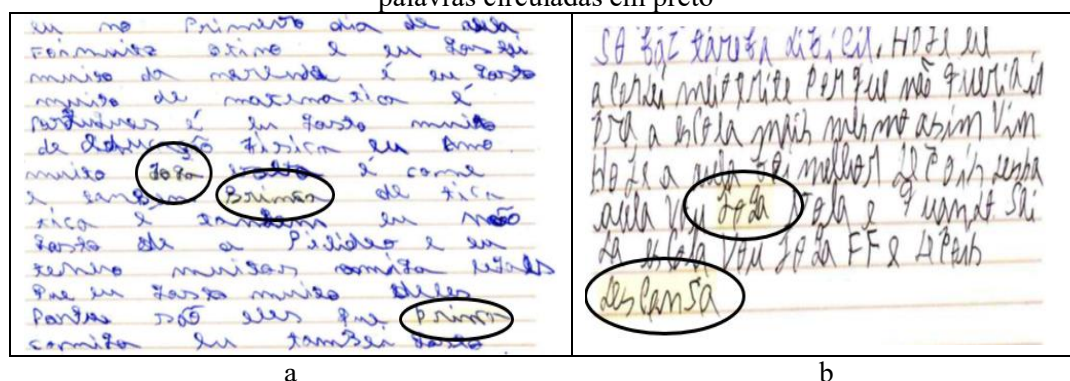 palavras circuladas em preto
eu no Primero dia de aula
muito da merenda é eu Gosto
muito de matematica é
é eu Gosto muito
de Educação Fisica eu Amo
muito Joga é come
e tanbem Brimca de Fica
Fica é tanbem eu não
Gosto de a e eu
tenho muitos amigo
Que eu Gosto muito deles
São eles Que Prima
comigo eu também Gosto
So faz tarefa difícil. HOJE eu
a Cordei meio trite Por que não queria ir
Pra a esCola mais mesmo asim Vim
HOJE a aula foi melhor dePois desha
aula Vou JOGA bola e quando Sai
da esCola Vou JOGA FF e dePois
desCansa
a
b